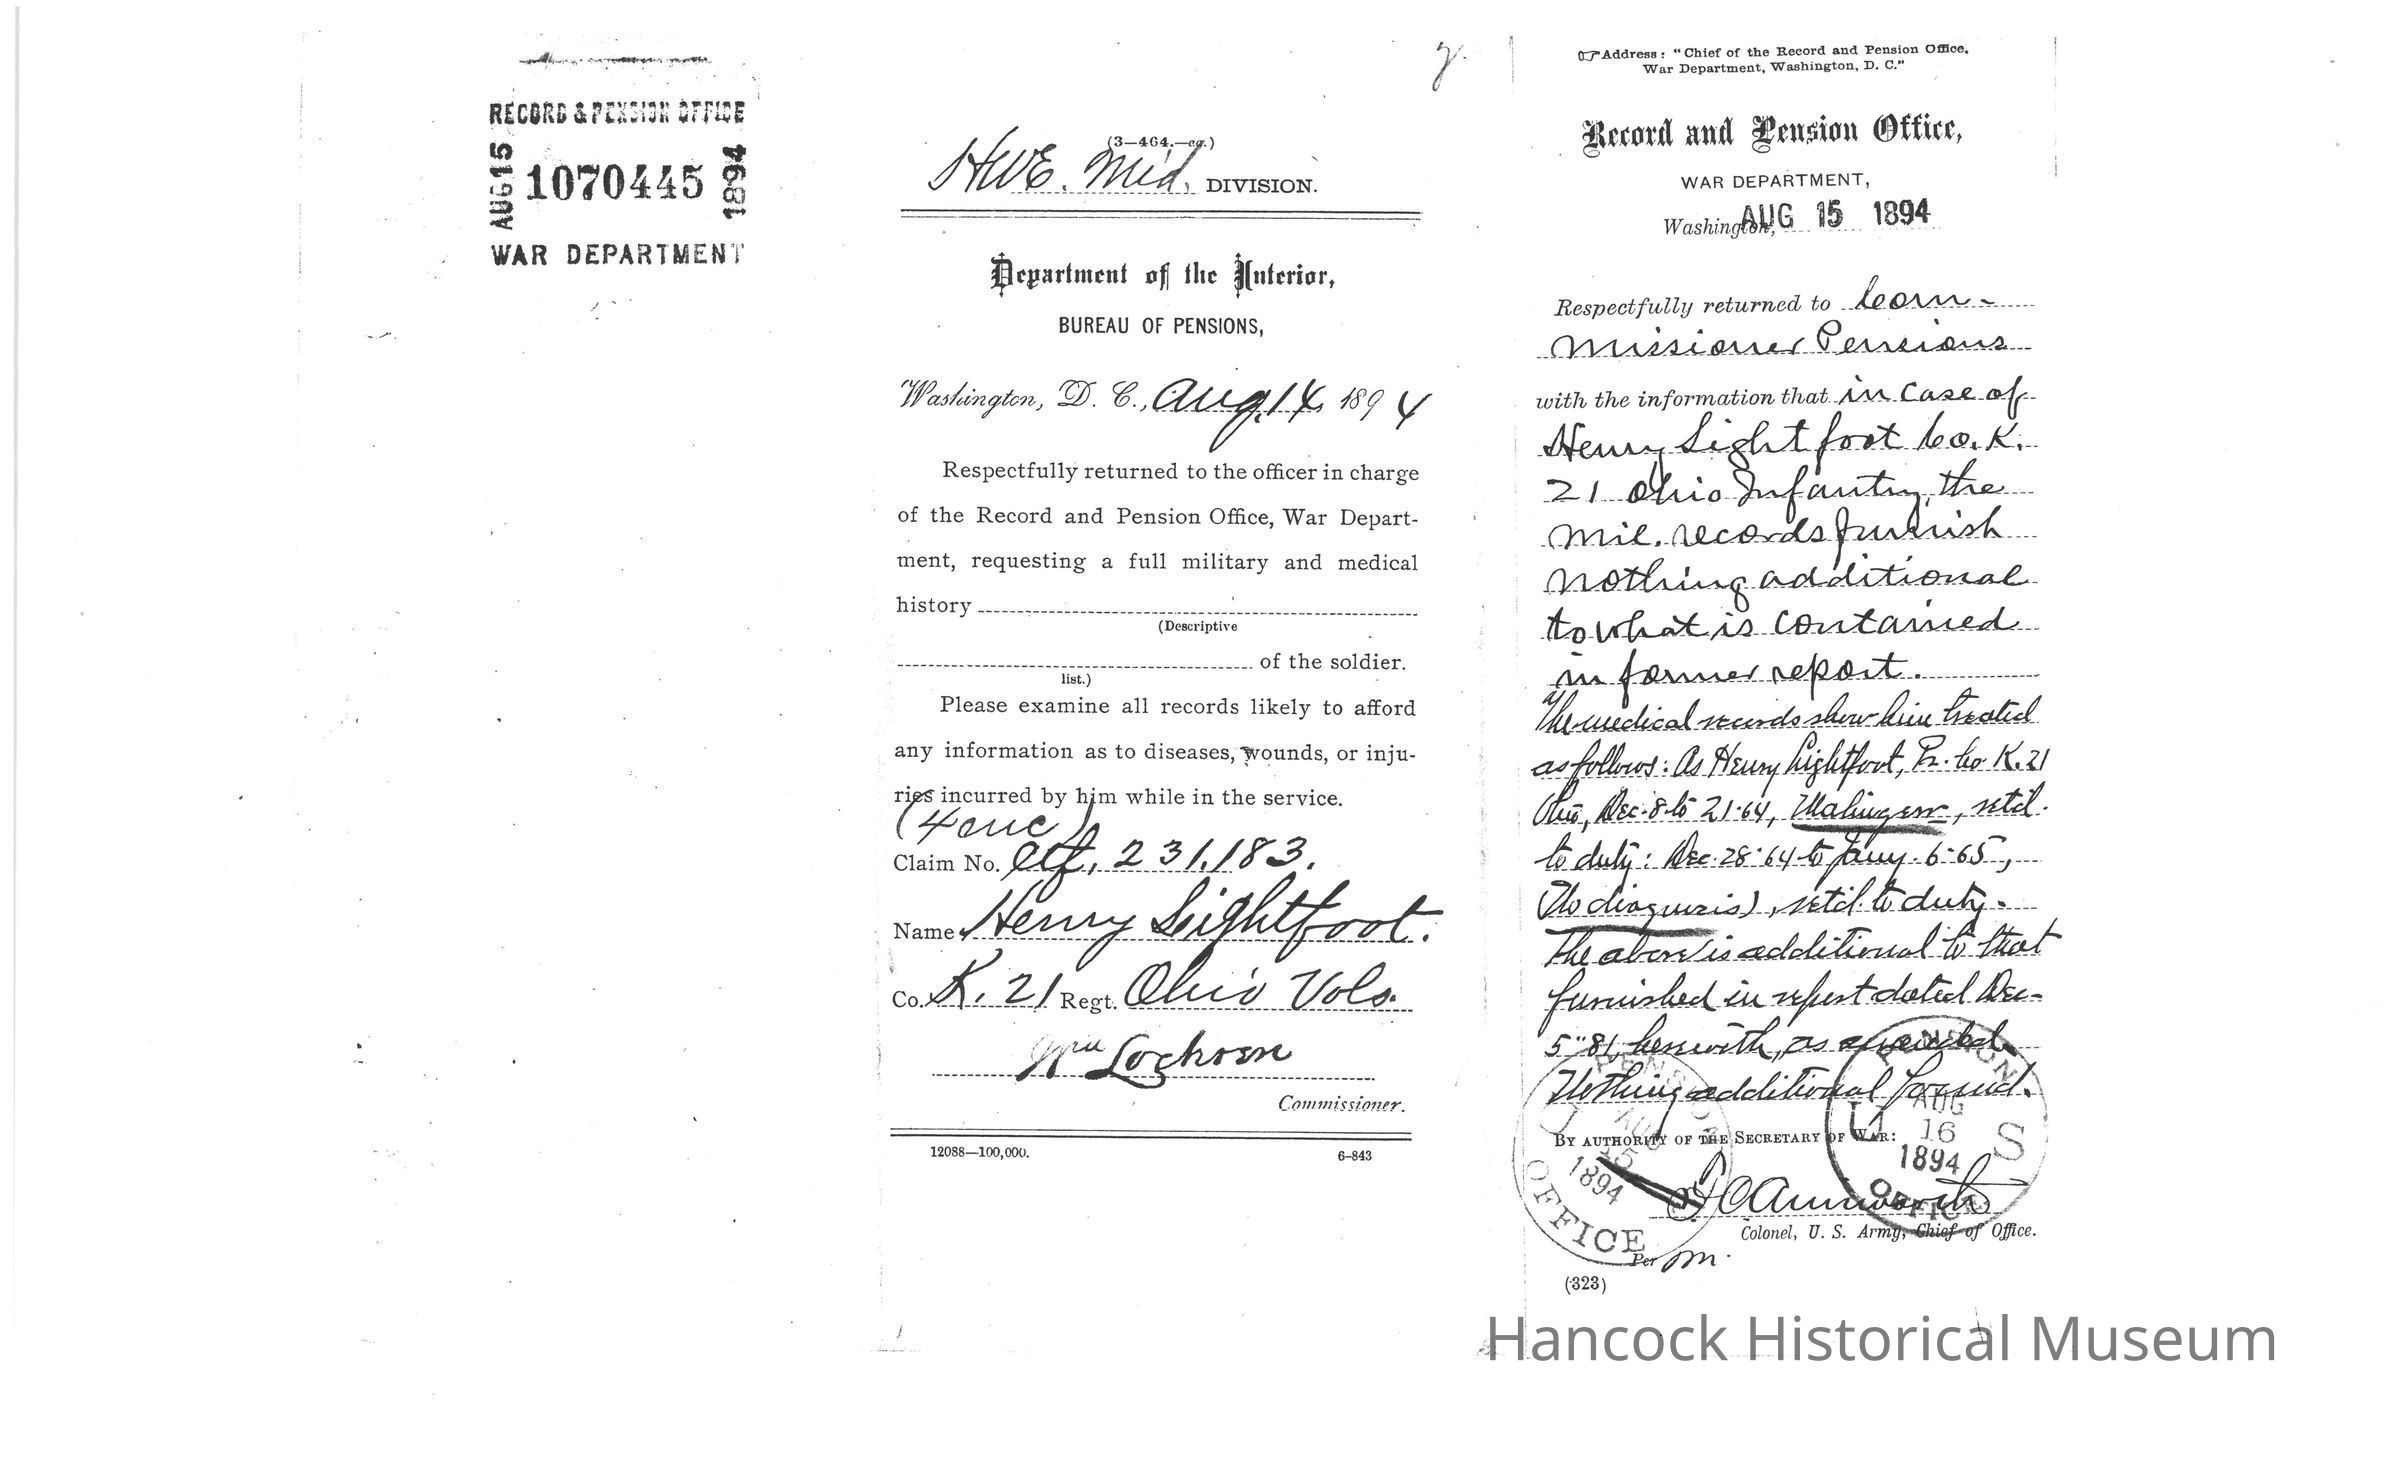 RECORD & PENSION OFFICE
AUG 15
1070445
1894
WAR DEPARTMENT
y.
(3—464.—aq.)
HWE. Mid. DIVISION.
Department of the Interior,
BUREAU OF PENSIONS,
Washington, D. C., Aug. 14, 1894
Respectfully returned to the officer in charge
of the Record and Pension Office, War Depart-
ment, requesting a full military and medical
history
(Descriptive
of the soldier.
list.)
Please examine all records likely to afford
any information as to diseases, wounds, or inju-
ries incurred by him while in the service.
(4 enc)
Claim No. Ctf. 231.183.
Name Henry Lightfoot.
Co. K. 21 Regt. Ohio Vols.
Wm Lochren
Commissioner.
12088—100,000.
6–843
Address: "Chief of the Record and Pension Office,
War Department, Washington, D. C."
Record and Pension Office,
WAR DEPARTMENT,
Washington, AUG 15 1894
Respectfully returned to Com-
missioner Pensions
with the information that in case of
Henry Lightfoot Co. K.
21 Ohio Infantry, the
mil. records furnish
nothing additional
to what is contained
in former report.
The medical records show him treated
as follows: As Henry Lightfoot, Pr. Co. K. 21
Ohio, Dec. 8 to 21·64, Malingerer, retd.
to duty: Dec. 28·64 to Jany. 6·65,
(No diagnosis), retd. to duty.
The above is additional to that
furnished in report dated Dec.
5" 81, herewith, as
Nothing additional found.
BY AUTHORITY OF THE SECRETARY OF WAR:
F C Ainsworth
Colonel, U. S. Army, Chief of Office.
Per m.
(323)
PENSION
U
AUG
15
1894
OFFICE
PENSION
U S
AUG
16
1894
OFFICE
Hancock Historical Museum